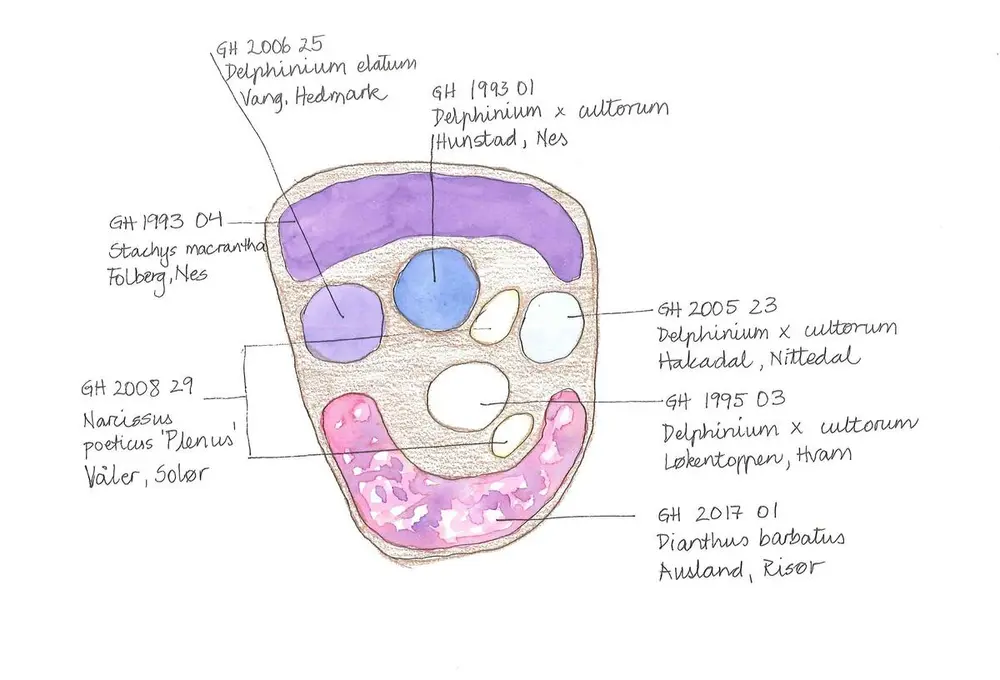 GH 2006 25
Delphinium elatum
Vang, Hedmark
GH 1993 01
Delphinium x cultorum
Hunstad, Nes
GH 1993 04
Stachys macrantha
Folberg, Nes
GH 2005 23
Delphinium x cultorum
Hakadal, Nittedal
GH 2008 29
Narcissus
poeticus 'Plenus'
Våler, Solør
GH 1995 03
Delphinium x cultorum
Løkentoppen, Hvam
GH 2017 01
Dianthus barbatus
Ausland, Risør